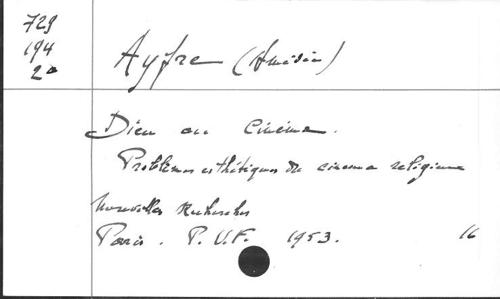 729
194
20
Ayfre (Amédée)
Dieu au Cinéma.
Problèmes esthétiques du cinéma religieux
Nouvelles Recherches
Paris. P.U.F. 1953. 16